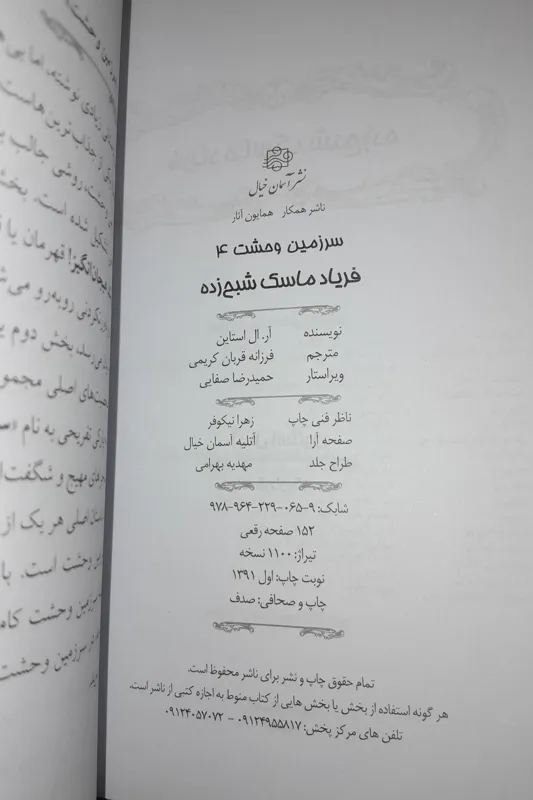 نشر آسمان خیال
ناشر همکار همایون آثار
سرزمین وحشت ۴
فریاد ماسک شبح‌زده
نویسنده آر. ال استاین
مترجم فرزانه قربان کریمی
ویراستار حمیدرضا صفایی
ناظر فنی چاپ زهرا نیکوفر
صفحه آرا آتلیه آسمان خیال
طراح جلد مهدیه بهرامی
شابک: ۹-۰۶۵-۲۲۹-۹۶۴-۹۷۸
۱۵۲ صفحه رقعی
تیراژ: ۱۱۰۰ نسخه
نوبت چاپ: اول ۱۳۹۱
چاپ و صحافی: صدف
تمام حقوق چاپ و نشر برای ناشر محفوظ است.
هر گونه استفاده از بخش یا بخش هایی از کتاب منوط به اجازه کتبی از ناشر است.
تلفن های مرکز پخش: ۰۹۱۲۴۹۵۵۸۱۷ - ۰۹۱۲۴۰۵۷۰۷۲
زیادی نوشته، اما
از جذاب‌ترین هاست
وحشت، روشی جالب
تشکیل شده است. بخش
هیجان‌انگیز! قهرمان یا
روبه‌رو
بخش دوم
اصلی
تفریحی به نام
مهیج و
اصلی هر یک از
وحشت است.
سرزمین وحشت
در سرزمین وحشت